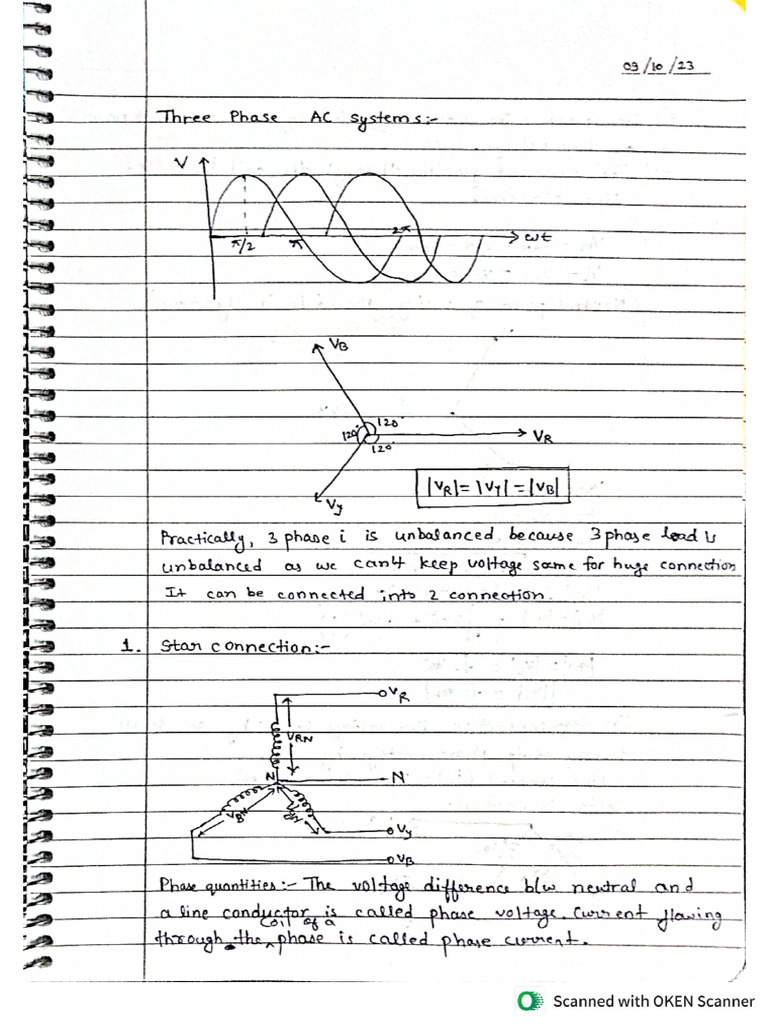 03/10/23
Three Phase AC systems:-
V
π/2
π
2π
ωt
VB
120°
120°
120°
VR
Vy
|VR|=|Vy|=|VB|
Practically, 3 phase i is unbalanced because 3 phase load is
unbalanced as we can't keep voltage same for huge connection
It can be connected into 2 connection.
1. Star connection:-
VR
VRN
N
N
VBN
Vy
VB
Phase quantities:- The voltage difference b/w neutral and
a line conductor is called phase voltage. Current flowing
through the coil of a phase is called phase current.
Scanned with OKEN Scanner